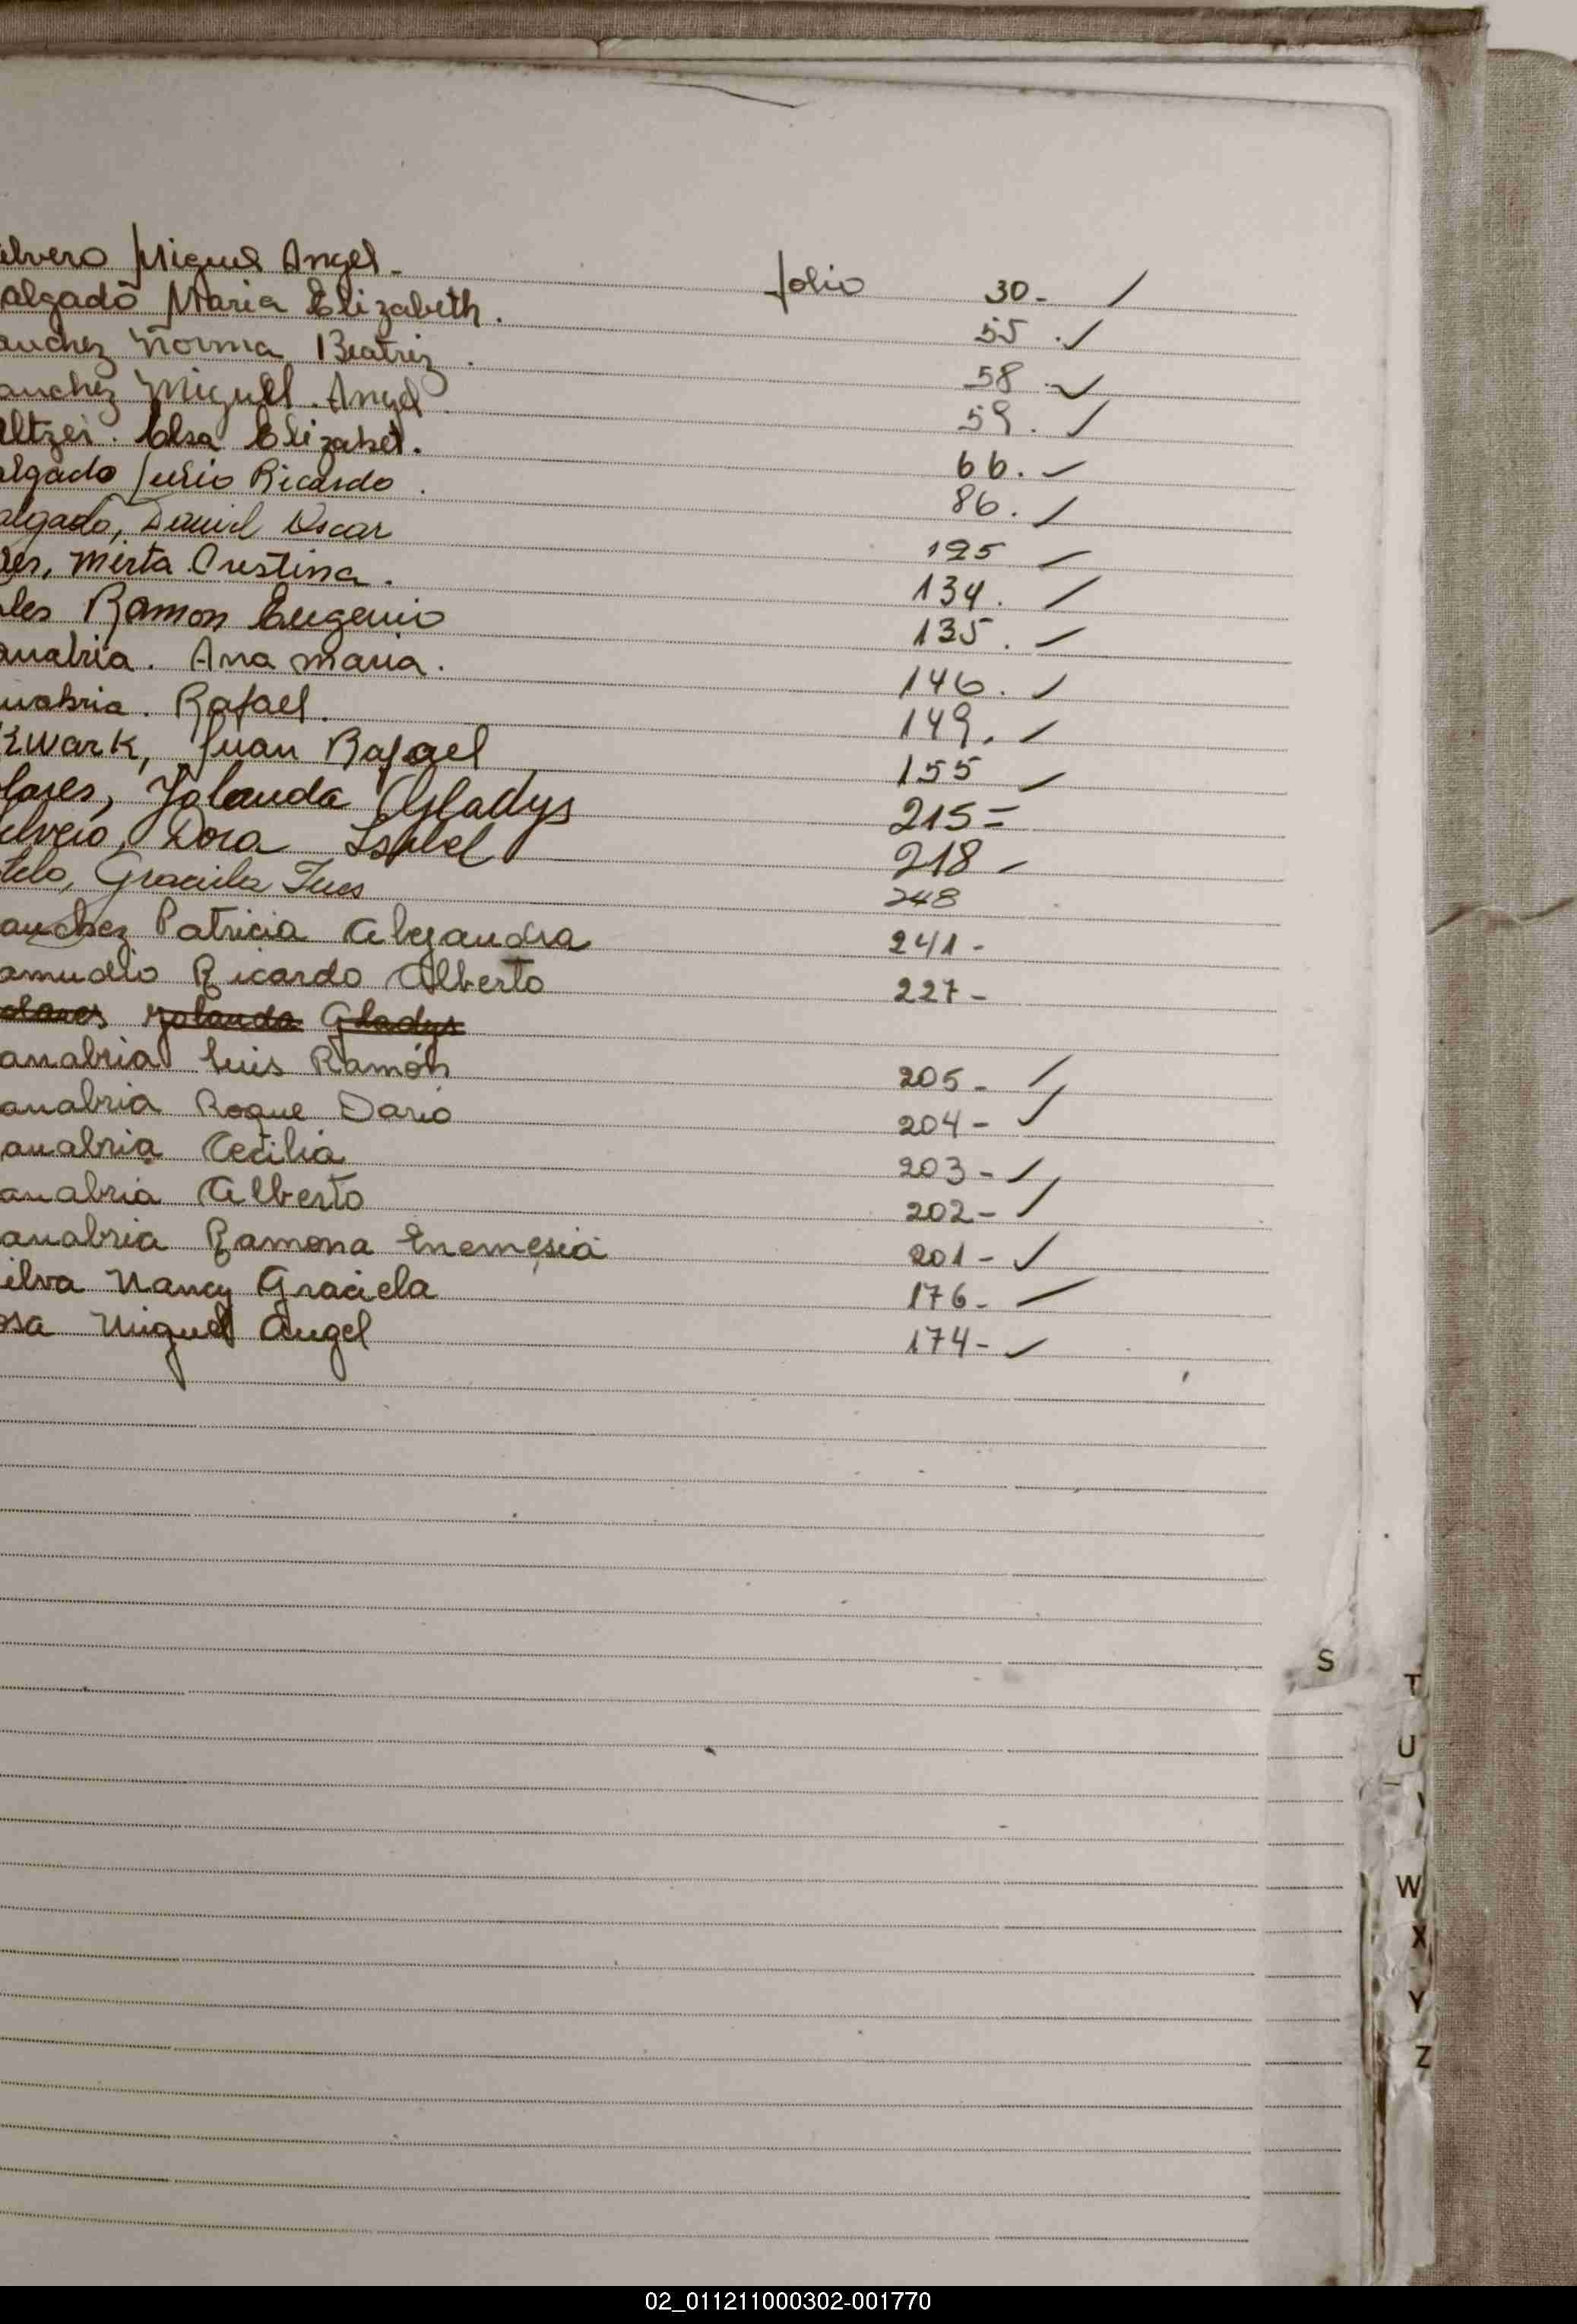 alvero Miguel Angel - folio 30- /
algado Maria Elizabeth. 55 . ✓
anchez Norma Beatriz . 58 - ✓
anchez Miguel Angel . 59 . /
altzei. Elsa Elizabet. 66. ✓
algado Julio Ricardo . 86 . /
algado, Daniel Oscar 125 /
Mirta Cristina . 134 . /
les Ramon Eugenio 135 . /
anabria. Ana maria. 146 . ✓
nabria. Rafael. 149. ✓
zwark, Juan Rafael 155 ✓
lares, Yolanda Gladys 215 =
alveio, Dora Isabel 218 -
telo, Graciela Ines 248
anchez Patricia Alejandra 241 -
amudio Ricardo Alberto 227 -
olares Yolanda Gladys
anabria Luis Ramón 205 - /
anabria Roque Dario 204 - ✓
anabria Cecilia 203 - ✓
anabria Alberto 202 - ✓
anabria Ramona Enemesia 201 - ✓
ilva Nancy Graciela 176 - /
osa Miguel Angel 174 - ✓
S
T
U
W
X
Y
Z
02_011211000302-001770